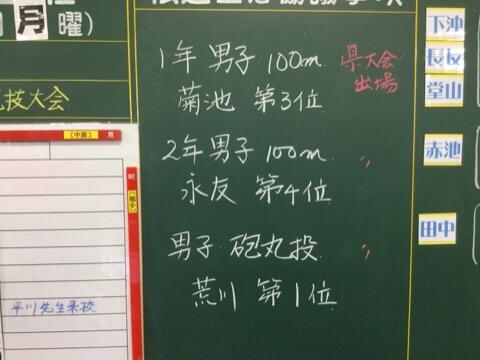 月 曜）
技大会
1年 男子 100m 県大会
出場
菊池 第3位
2年男子 100m 〃
永友 第4位
男子 砲丸投 〃
荒川 第1位
平川先生来校
下沖
長友
堂山
赤池
田中